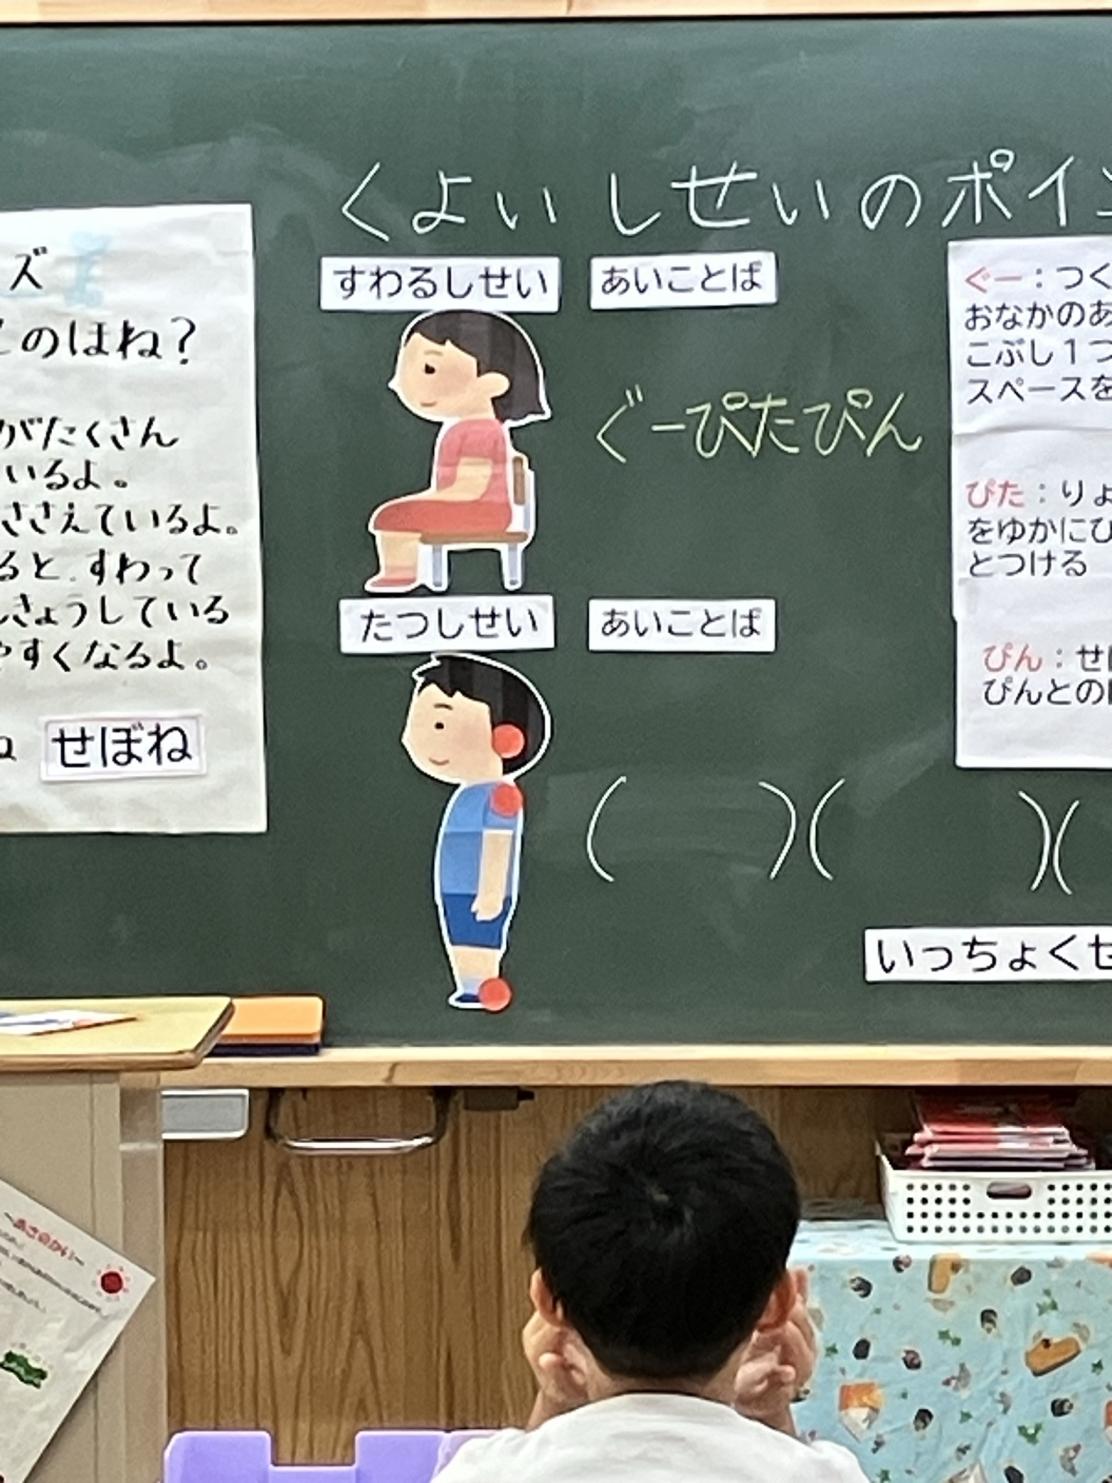 くよいしせいのポイン
ズ
のほね?
がたくさん
いるよ。
ささえているよ。
ると、すわって
きょうしている
やすくなるよ。
ね せぼね
すわるしせい
あいことば
ぐーぴたぴん
たつしせい
あいことば
( )( )(
いっちょくせ
ぐー:つく
おなかのあ
こぶし1つ
スペースを
ぴた:りょ
をゆかにぴ
とつける
ぴん:せ
ぴんとの